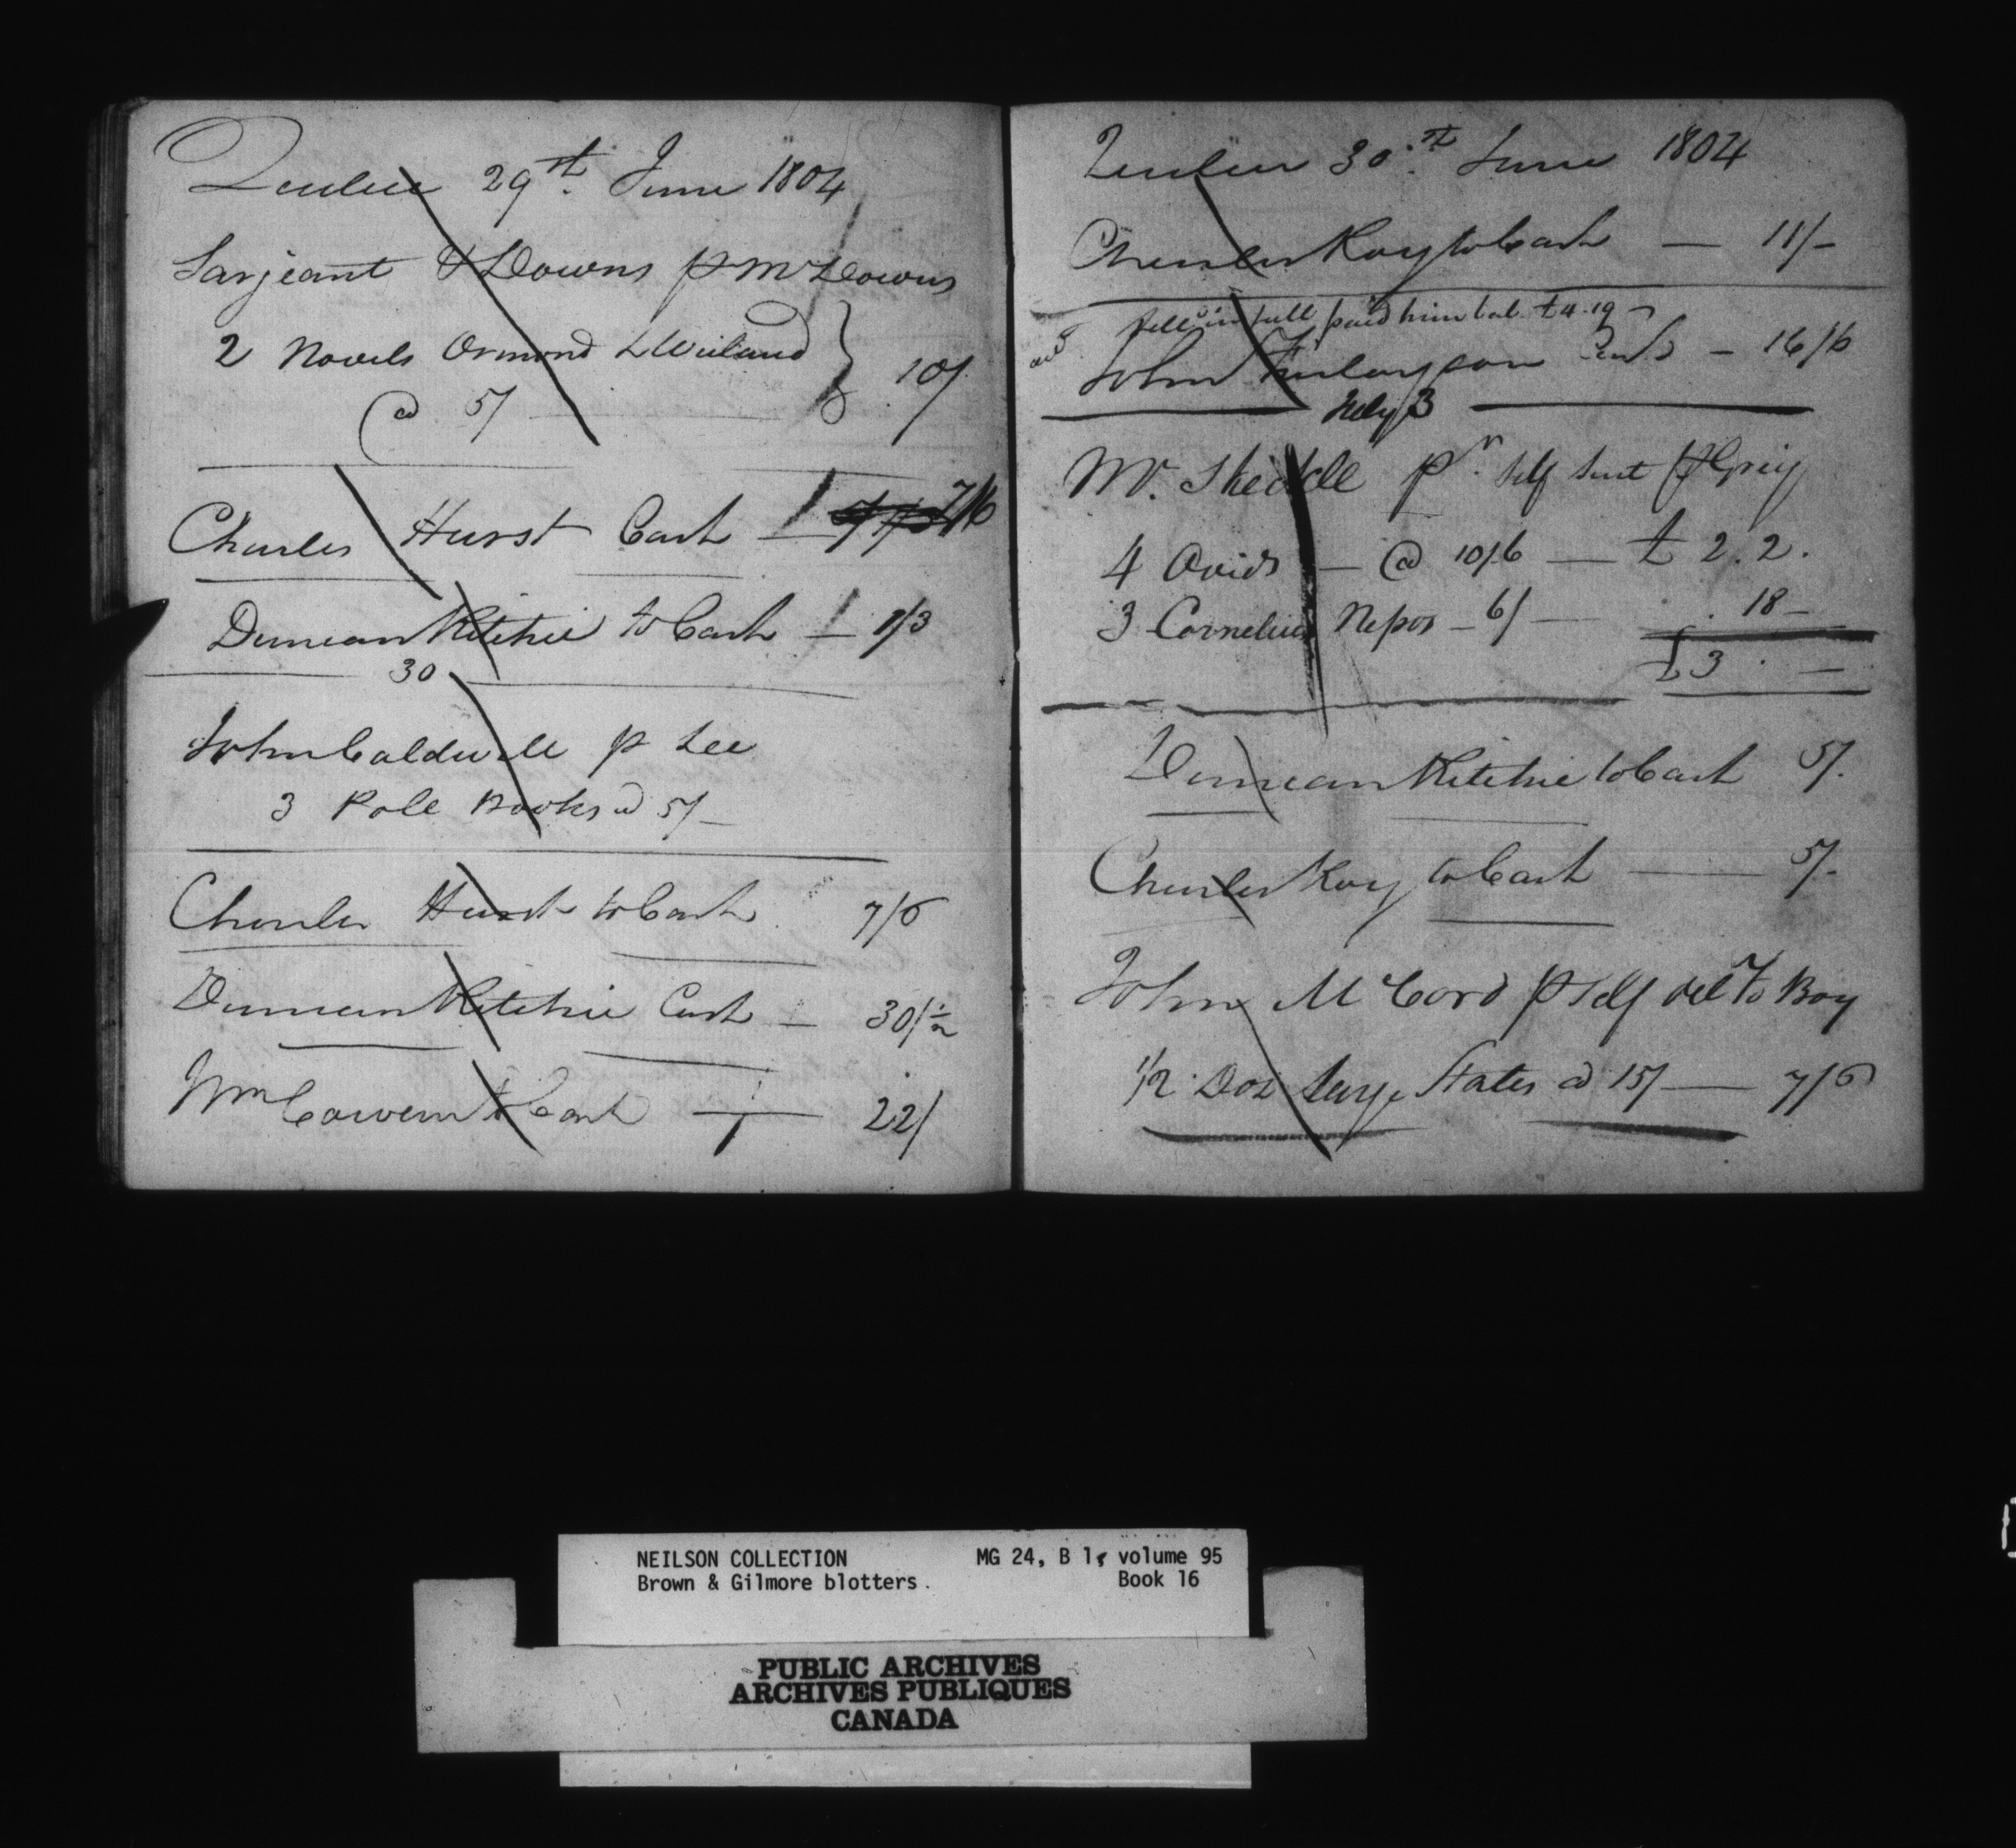 Quebec 29st June 1804
Sarjeant & Downs p Mr Downs
2 Novels Ormond & Weiland
@ 5/ 10/
Charles Hurst Cash — 7/6
Duncan Ritchie to Cash — 1/3
30
John Caldwell p Lee
3 Role Books @ 5/—
Charles Hurst to Cash 7/6
Duncan Ritchie Cash — 30/½
Wm Cowern to Cash — 22/
Quebec 30st June 1804
Charles Roy to Cash — 11/—
in full paid him bal. £4.19
John Finlayson Cash — 16/6
July 3
Mr. Skeddle pr. Self Sent p Greig
4 Ovids — @ 10/6 — £ 2.2.
3 Cornelius Nepos — 6/ — 18 —
£3 . —
Duncan Ritchie to Cash 5/.
Charles Roy to Cash — 5/-
John McCord p Self del to Boy
1/2 Doz large Slates @ 15/ — 7/6
NEILSON COLLECTION MG 24, B 1, volume 95
Brown & Gilmore blotters. Book 16
PUBLIC ARCHIVES
ARCHIVES PUBLIQUES
CANADA